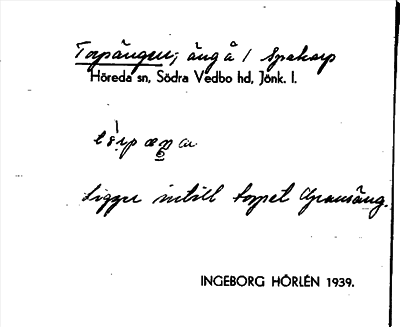 Torpängen, äng å 1 Spakarp
Höreda sn, Södra Vedbo hd, Jönk. l.
Ligger intill torpet Granäng.
INGEBORG HÖRLÉN 1939.